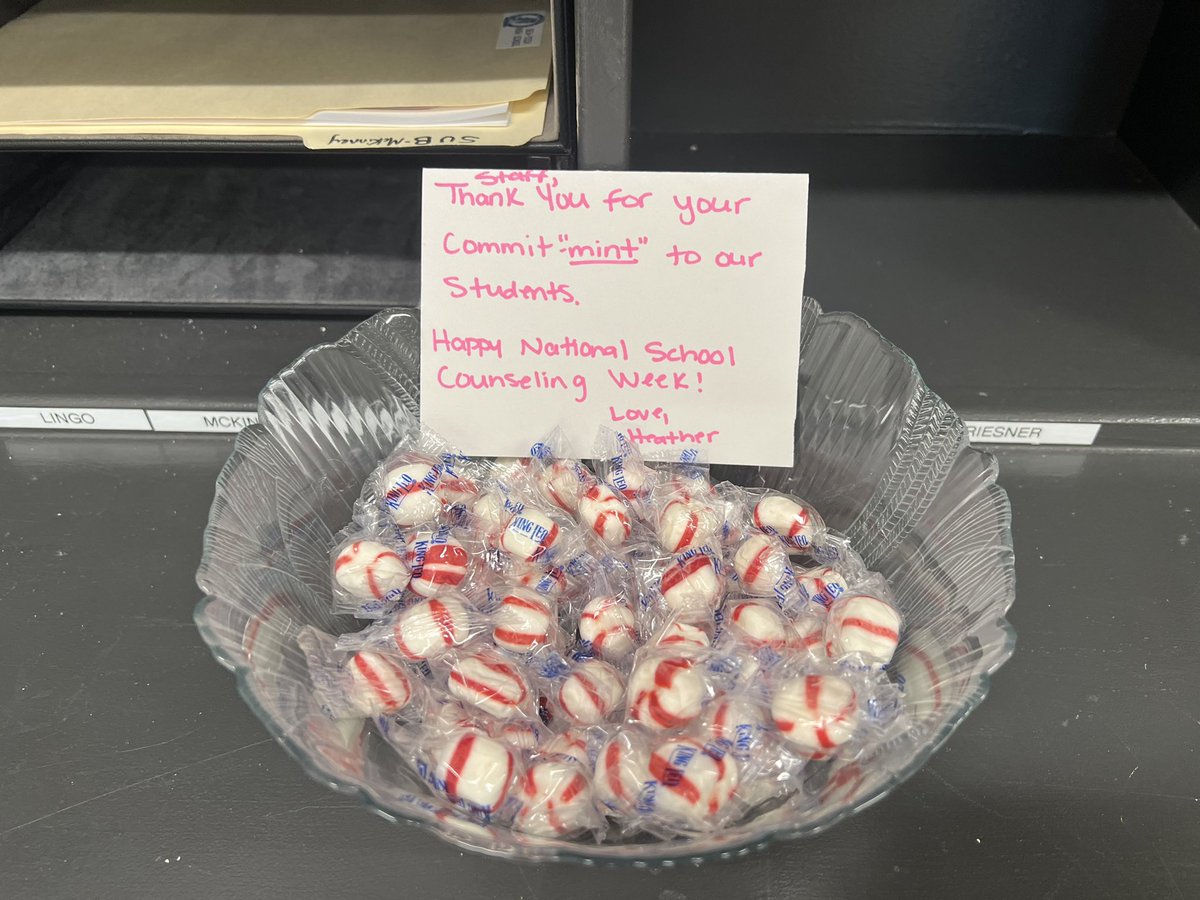 SUB-McKinney
Staff,
Thank You for your
Commit-"mint" to our
Students.
Happy National School
Counseling Week!
Love,
Heather
LINGO
MCKIN
RIESNER
KING LEO
KING LEO
KING LEO
KING LEO
KING LEO
KING LEO